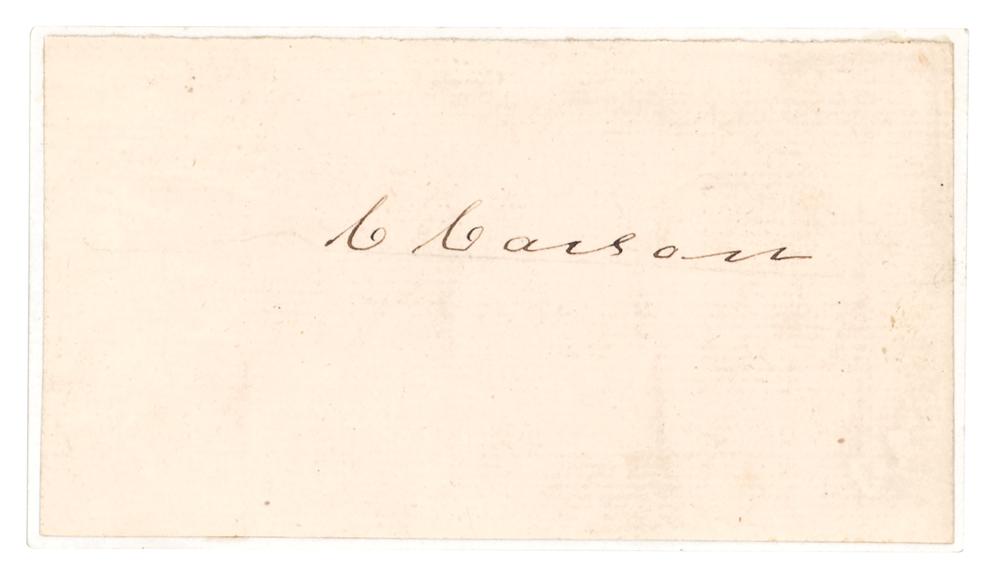 C Carson